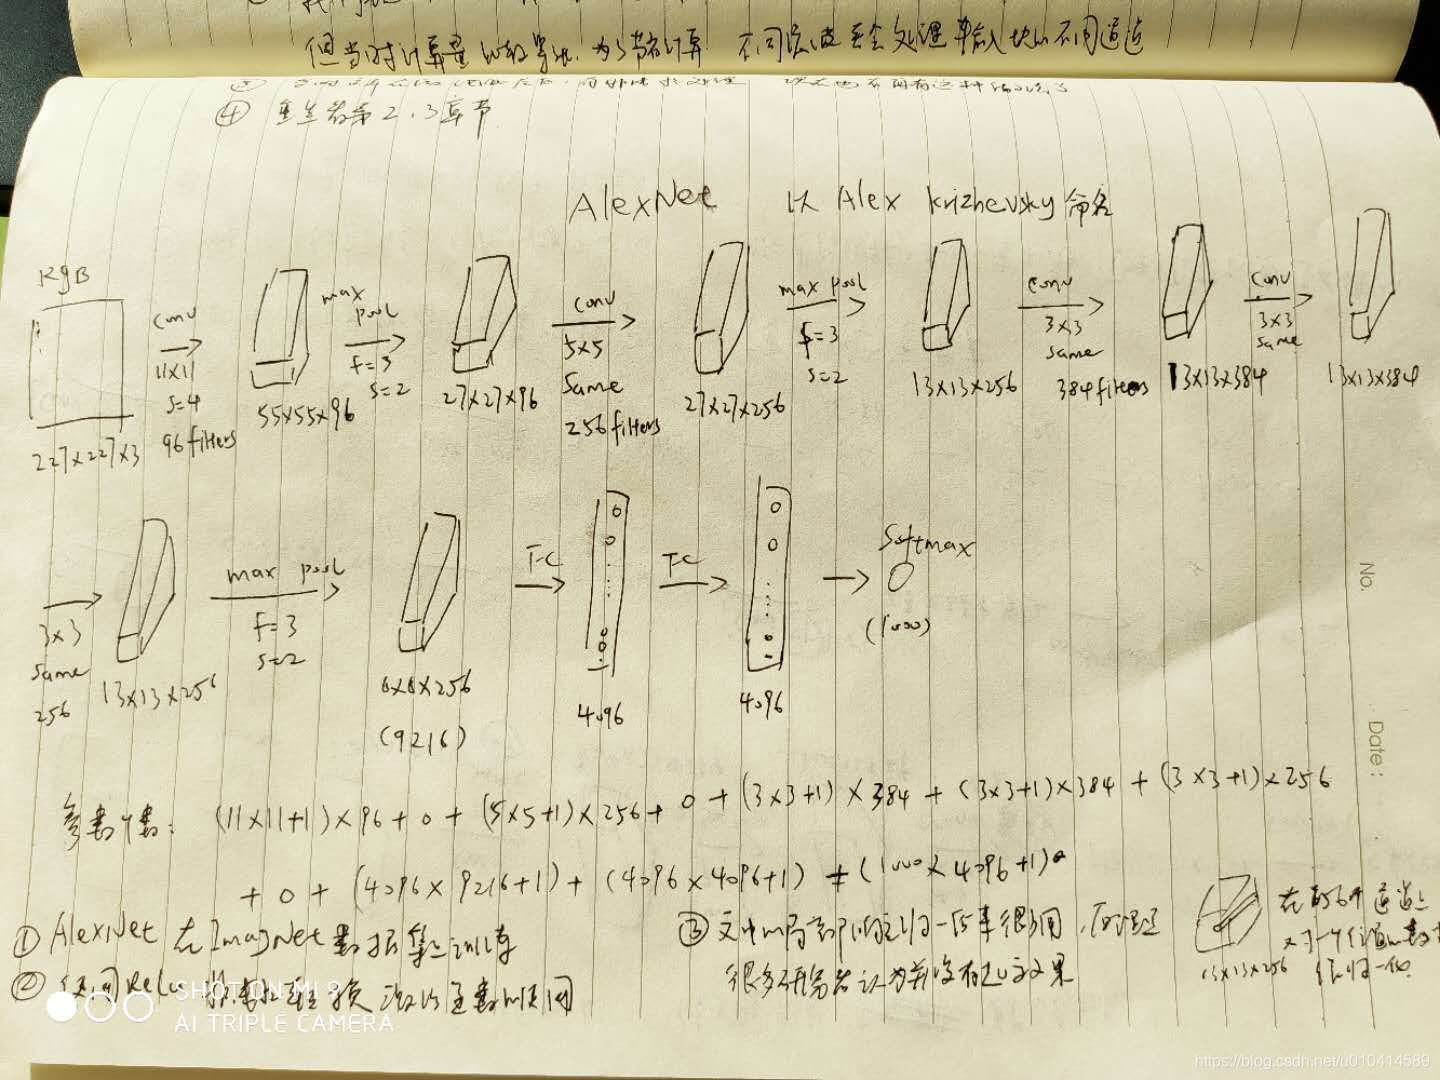 但当时计算量 为了节省计算 不同 处理 输入 不同通道
④ 第2、3章节
AlexNet 以 Alex Krizhevsky 命名
RGB
227×227×3
conv
11×11
s=4
96 filters
55×55×96
max
pool
f=3
s=2
27×27×96
conv
5×5
same
256 filters
27×27×256
max pool
f=3
s=2
13×13×256
conv
3×3
same
384 filters
13×13×384
conv
3×3
same
13×13×384
3×3
same
256
13×13×256
max pool
f=3
s=2
6×6×256
(9216)
FC
4096
FC
4096
Softmax
(1000)
参数个数: (11×11+1)×96 + 0 + (5×5+1)×256 + 0 + (3×3+1)×384 + (3×3+1)×384 + (3×3+1)×256
+ 0 + (4096×9216+1) + (4096×4096+1) + (1000×4096+1)
① AlexNet 在ImagNet数据集上训练
② 使用Relu
③ 文中 局部响应归一
很多研究者认为并没有 效果
13×13×256
在 256个通道上
归一化
No.
Date:
SHOT ON MI 9
AI TRIPLE CAMERA
https://blog.csdn.net/u010414589